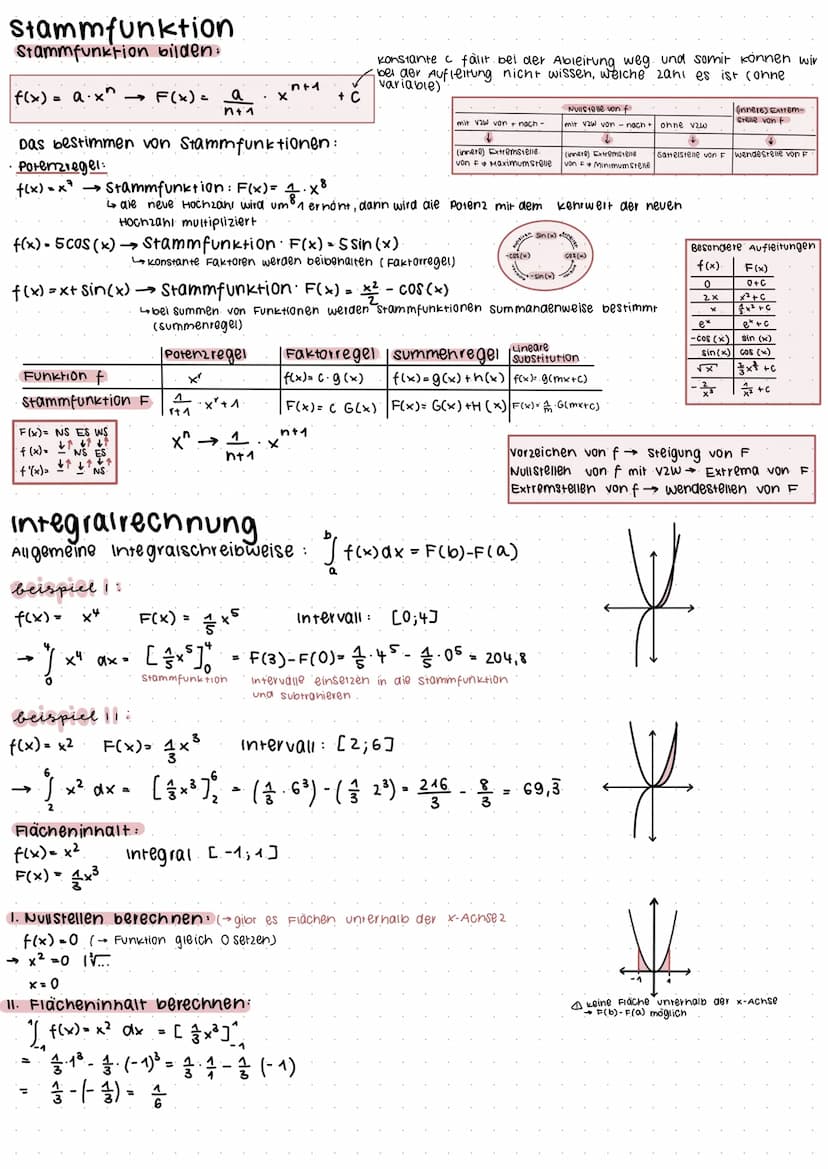 Stammfunktion
Stammfunktion bilden:
Konstante C fällt bei der Ableitung weg und somit können wir
bei der Aufleitung nicht wissen, welche Zahl es ist (ohne
Variable)
f(x) = a·xⁿ → F(x) = a/(n+1) · xⁿ⁺¹ + C
Nullstelle von f
(innere) Extremstelle von f
mit VZW von + nach - | mit VZW von - nach + | ohne VZW
↓ ↓ ↓ ↓
(innere) Extremstelle von F → Maximumstelle | (innere) Extremstelle von F → Minimumstelle | Sattelstelle von F | Wendestelle von F
Das bestimmen von Stammfunktionen:
· Potenzregel:
f(x) = x⁷ → Stammfunktion: F(x) = 1/8 · x⁸
↳ die neue Hochzahl wird um 1 erhöht, dann wird die Potenz mit dem Kehrwert der neuen
Hochzahl multipliziert
f(x) = 5cos(x) → Stammfunktion: F(x) = 5 sin(x)
↳ Konstante Faktoren werden beibehalten (Faktorregel)
sin(x)
-cos(x) cos(x)
-sin(x)
f(x) = x + sin(x) → Stammfunktion: F(x) = x²/2 - cos(x)
↳ bei Summen von Funktionen werden Stammfunktionen summandenweise bestimmt
(Summenregel)
Besondere Aufleitungen
f(x) | F(x)
0 | 0+C
2x | x²+C
x | 1/2 x² + C
eˣ | eˣ + C
-cos(x) | sin(x)
sin(x) | cos(x)
√x | 2/3 x^(3/2) + C
-2/x³ | 1/x² + C
Potenzregel | Faktorregel | Summenregel | Lineare Substitution
Funktion f | xʳ | f(x) = c · g(x) | f(x) = g(x) + h(x) | f(x) = g(mx+c)
Stammfunktion F | 1/(r+1) · xʳ+1 | F(x) = C G(x) | F(x) = G(x) + H(x) | F(x) = 1/m · G(mx+c)
F(x) = NS ES WS
f(x) = NS ES
f'(x) = NS
xⁿ → 1/(n+1) · xⁿ⁺¹
Vorzeichen von f → Steigung von F
Nullstellen von f mit VZW → Extrema von F
Extremstellen von f → Wendestellen von F
Integralrechnung
Allgemeine Integralschreibweise: ∫ₐᵇ f(x)dx = F(b)-F(a)
beispiel I:
f(x) = x⁴ F(x) = 1/5 x⁵ Intervall: [0;4]
→ ∫₀⁴ x⁴ dx = [1/5 x⁵]₀⁴ = F(3)-F(0) = 1/5 · 4⁵ - 1/5 · 0⁵ = 204,8
Stammfunktion Intervalle einsetzen in die Stammfunktion
und subtrahieren
beispiel II:
f(x) = x² F(x) = 1/3 x³ Intervall: [2;6]
→ ∫₂⁶ x² dx = [1/3 x³]₂⁶ = (1/3 · 6³) - (1/3 2³) = 216/3 - 8/3 = 69,3̅
Flächeninhalt:
f(x) = x² Integral [-1;1]
F(x) = 1/3 x³
I. Nullstellen berechnen: (→ gibt es Flächen unterhalb der x-Achse?
f(x) = 0 (→ Funktion gleich 0 setzen)
→ x² = 0 |√...
x = 0
-1 1
⚠ Keine Fläche unterhalb der x-Achse
→ F(b)-F(a) möglich
II. Flächeninhalt berechnen:
∫₋₁¹ f(x) = x² dx = [1/3 x³]₋₁¹
= 1/3 · 1³ - 1/3 · (-1)³ = 1/3 · 1/1 - 1/3 (-1)
= 1/3 - (-1/3) = 1/6